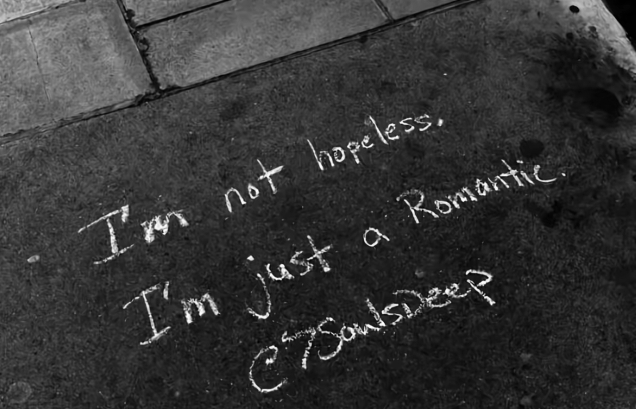 I'm not hopeless.
I'm just a Romantic.
@7SoulsDeep